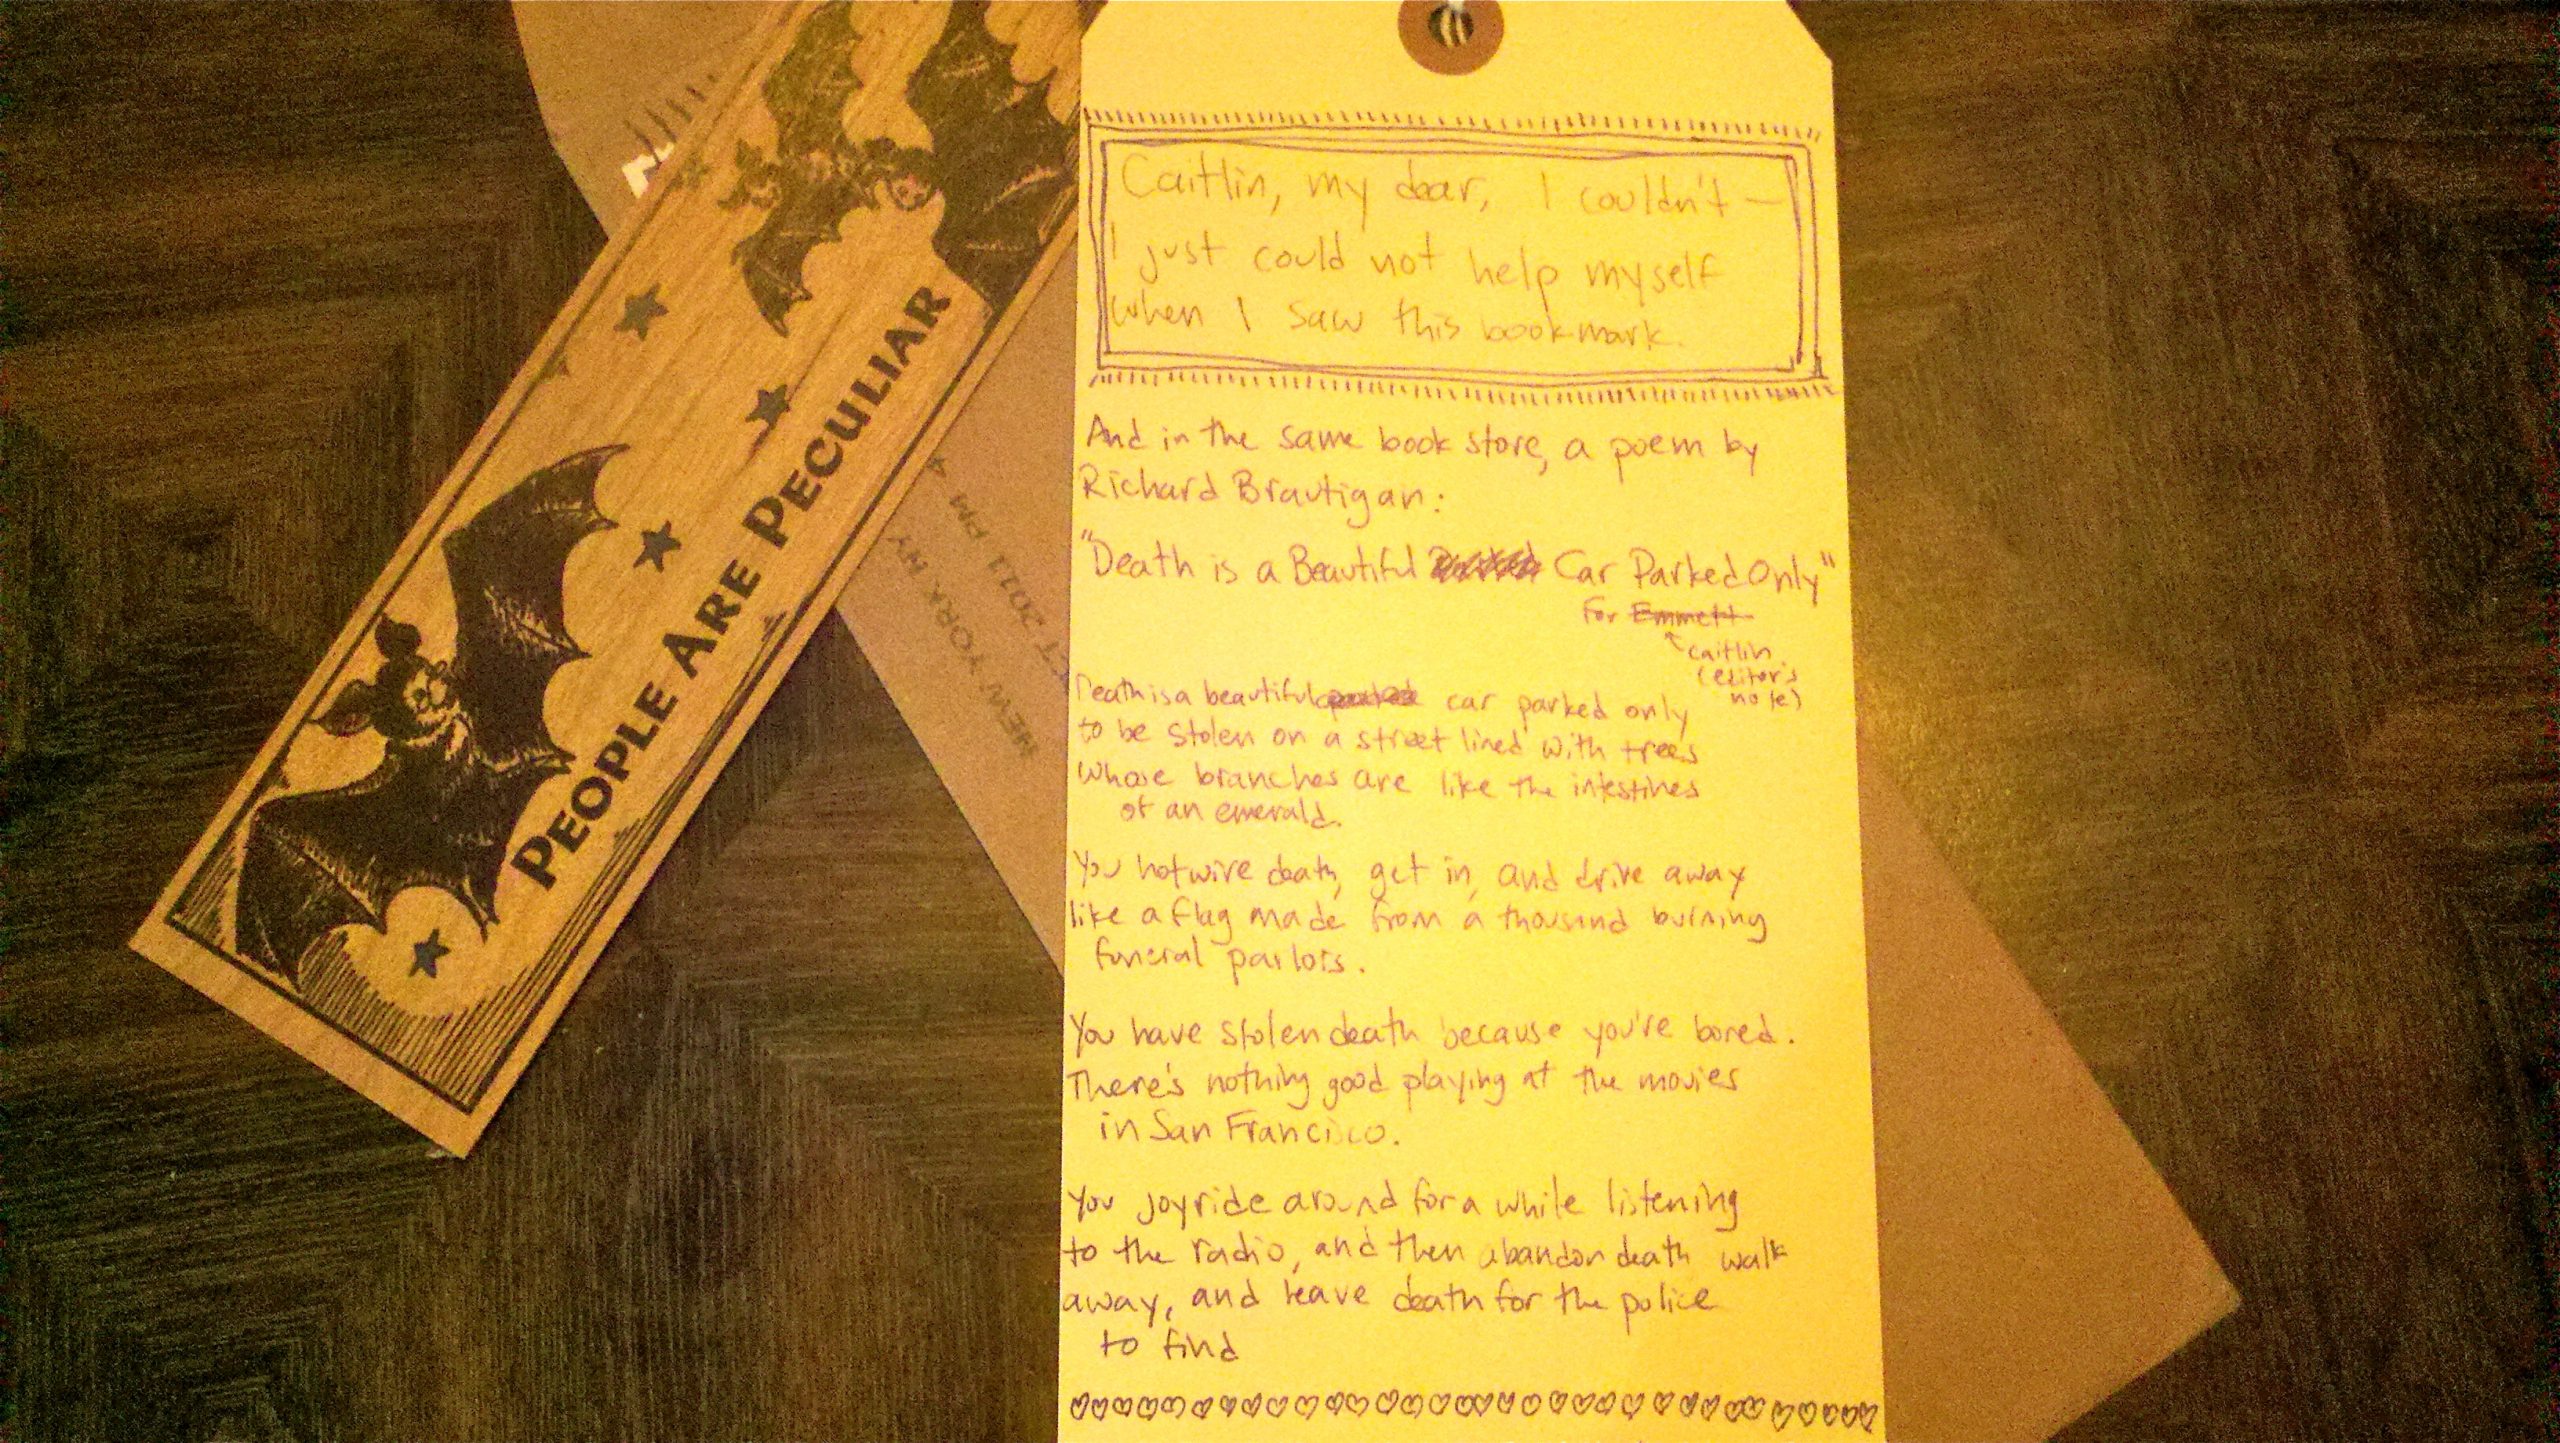 PEOPLE ARE PECULIAR
NEW YORK NY
CT 2011 PM 4
Caitlin, my dear, I couldn't —
I just could not help myself
when I saw this bookmark.
And in the same book store, a poem by
Richard Brautigan:
"Death is a Beautiful Car Parked Only"
for Emmett
Caitlin
(editor's
note)
Death is a beautiful parked car parked only
to be stolen on a street lined with trees
whose branches are like the intestines
of an emerald.
You hotwire death, get in, and drive away
like a flag made from a thousand burning
funeral parlors.
You have stolen death because you're bored.
There's nothing good playing at the movies
in San Francisco.
You joyride around for a while listening
to the radio, and then abandon death walk
away, and leave death for the police
to find